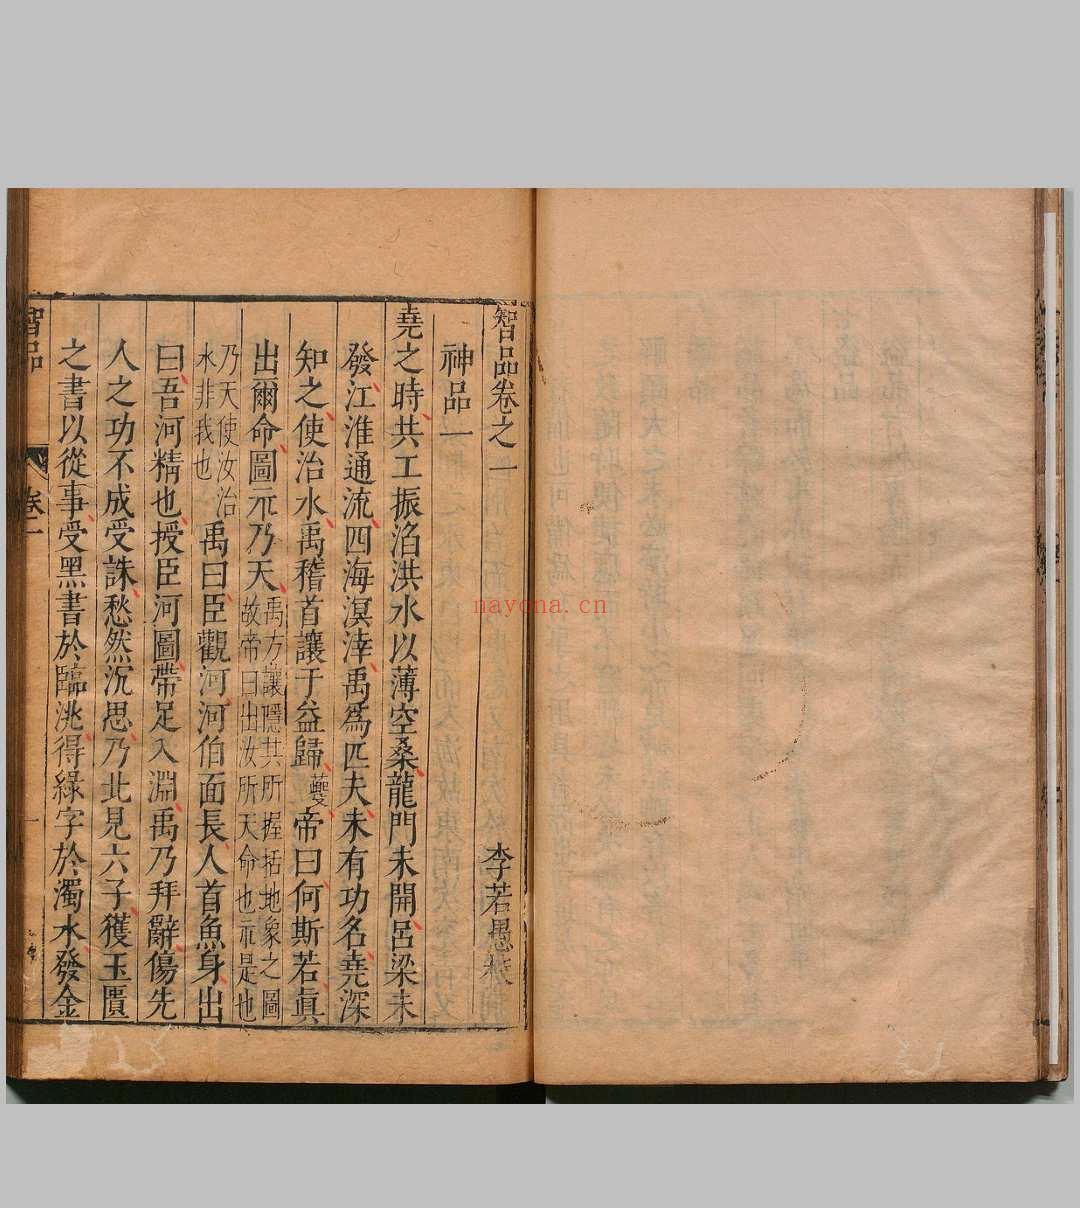 智品卷之一 李若愚校
神品一
堯之時共工振滔洪水以薄空桑龍門未開呂梁未
發江淮通流四海溟涬禹爲匹夫未有功名堯深
知之使治水禹稽首讓于益歸夔帝曰何斯若眞
出爾命圖示乃天禹方讓隱共所握括地象之圖故帝曰出汝所天命也示是也
乃天使汝治水非我也禹曰臣觀河河伯面長人首魚身出
曰吾河精也授臣河圖帶足入淵禹乃拜辭傷先
人之功不成受誅愁然沉思乃北見六子獲玉匱
之書以從事受黑書於臨洮得綠字於濁水發金
智品
卷一
一
nayona.cn